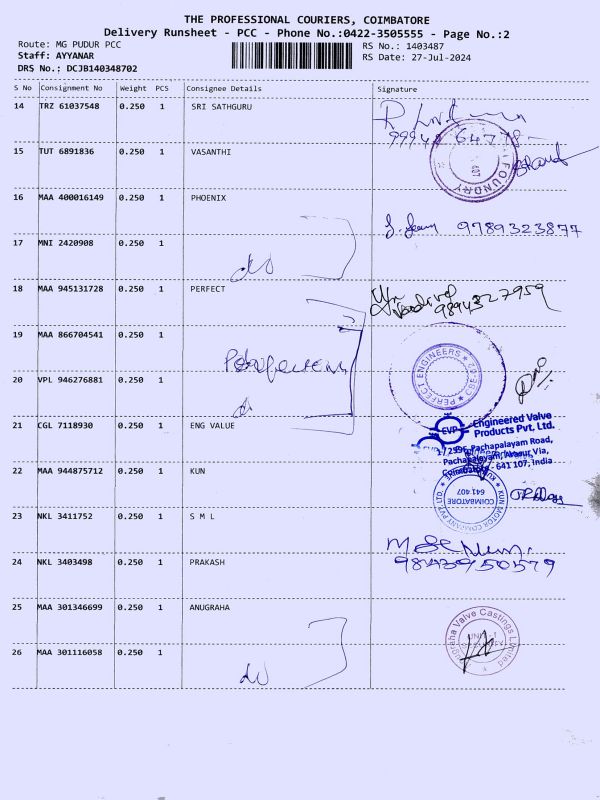 THE PROFESSIONAL COURIERS, COIMBATORE
Delivery Runsheet - PCC - Phone No.:0422-3505555 - Page No.:2
Route: MG PUDUR PCC
RS No.: 1403487
Staff: AYYANAR
RS Date: 27-Jul-2024
DRS No.: DCJB140348702
S No Consignment No Weight PCS Consignee Details Signature
14 TRZ 61037548 0.250 1 SRI SATHGURU
15 TUT 6891836 0.250 1 VASANTHI
FOUNDRY
16 MAA 400016149 0.250 1 PHOENIX
9789323877
17 MNI 2420908 0.250 1
do
18 MAA 945131728 0.250 1 PERFECT
9894327959
19 MAA 866704541 0.250 1
PERFECT ENGINEERS
20 VPL 946276881 0.250 1
21 CGL 7118930 0.250 1 ENG VALUE
EVP Engineered Valve
Products Pvt. Ltd.
Pachapalayam Road,
Coimbatore - 641 107, India
22 MAA 944875712 0.250 1 KUN
KUN MOTOR COMPANY PVT. LTD.
COIMBATORE
641 407
23 NKL 3411752 0.250 1 S M L
24 NKL 3403498 0.250 1 PRAKASH
25 MAA 301346699 0.250 1 ANUGRAHA
Anugraha Valve Castings Limited
26 MAA 301116058 0.250 1
do